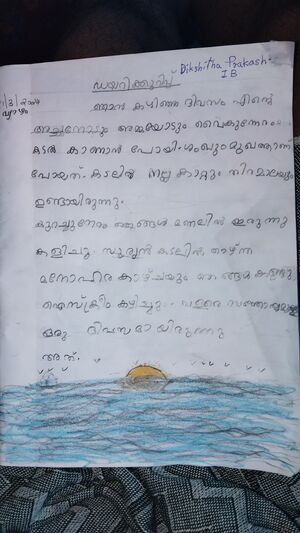 Dikshitha Prakash.
I B
ഡയറിക്കുറിപ്പ്
വ്യാഴം
ഞാൻ കഴിഞ്ഞ ദിവസം എന്റെ
അച്ഛനോടും അമ്മയോടും വൈകുന്നേരം
കടൽ കാണാൻ പോയി. ശംഖുംമുഖത്താണ്
പോയത്. കടലിൽ നല്ല കാറ്റും തിരമാലയും
ഉണ്ടായിരുന്നു.
കുറച്ചുനേരം ഞങ്ങൾ മണലിൽ ഇരുന്നു
കളിച്ചു. സൂര്യൻ കടലിൽ താഴ്ന്ന
മനോഹര കാഴ്ചയും ഞങ്ങൾ കണ്ടു.
ഐസ്ക്രീം കഴിച്ചു. വളരെ സന്തോഷമുള്ള
ഒരു ദിവസമായിരുന്നു
അത്.